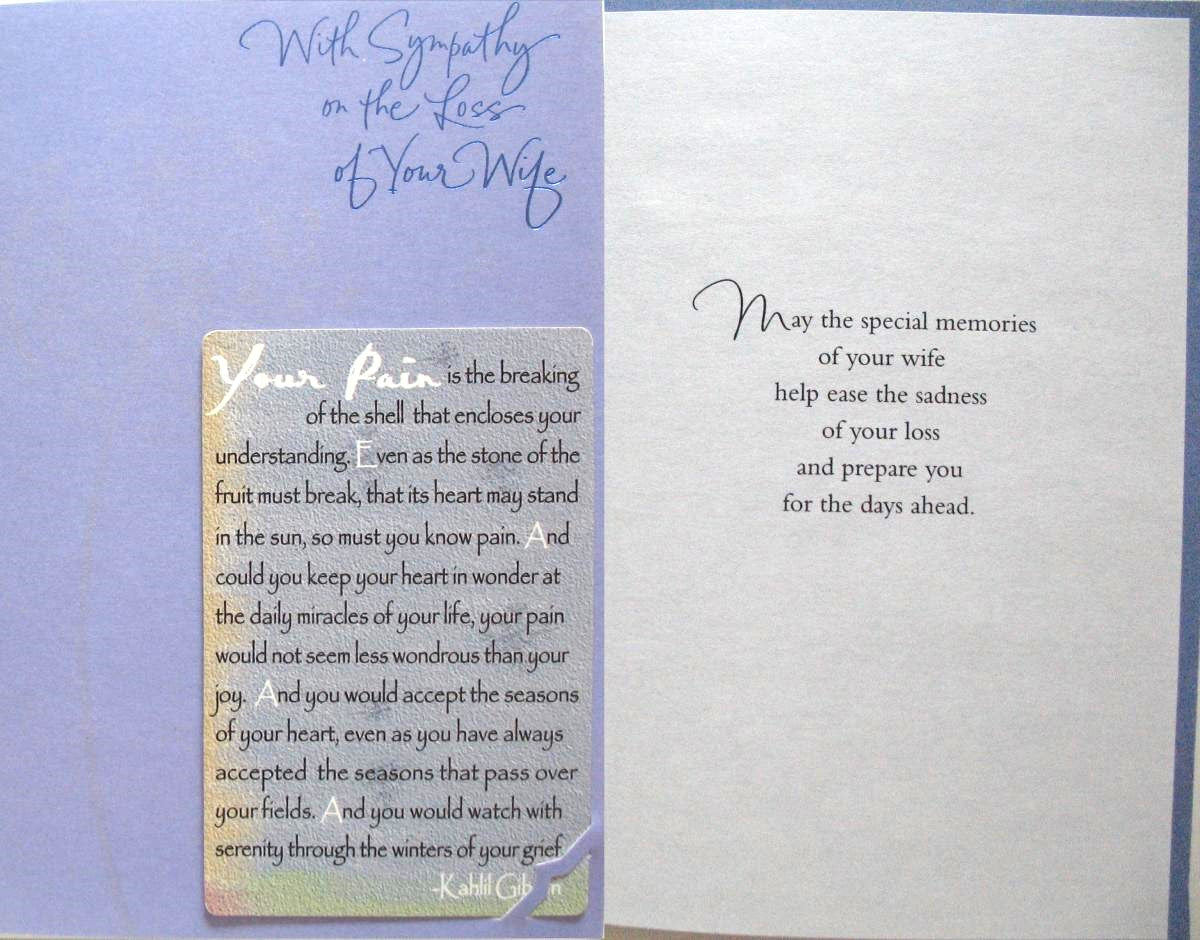 With Sympathy
on the Loss
of Your Wife
Your Pain is the breaking
of the shell that encloses your
understanding. Even as the stone of the
fruit must break, that its heart may stand
in the sun, so must you know pain. And
could you keep your heart in wonder at
the daily miracles of your life, your pain
would not seem less wondrous than your
joy. And you would accept the seasons
of your heart, even as you have always
accepted the seasons that pass over
your fields. And you would watch with
serenity through the winters of your grief.
-Kahlil Gibran
May the special memories
of your wife
help ease the sadness
of your loss
and prepare you
for the days ahead.